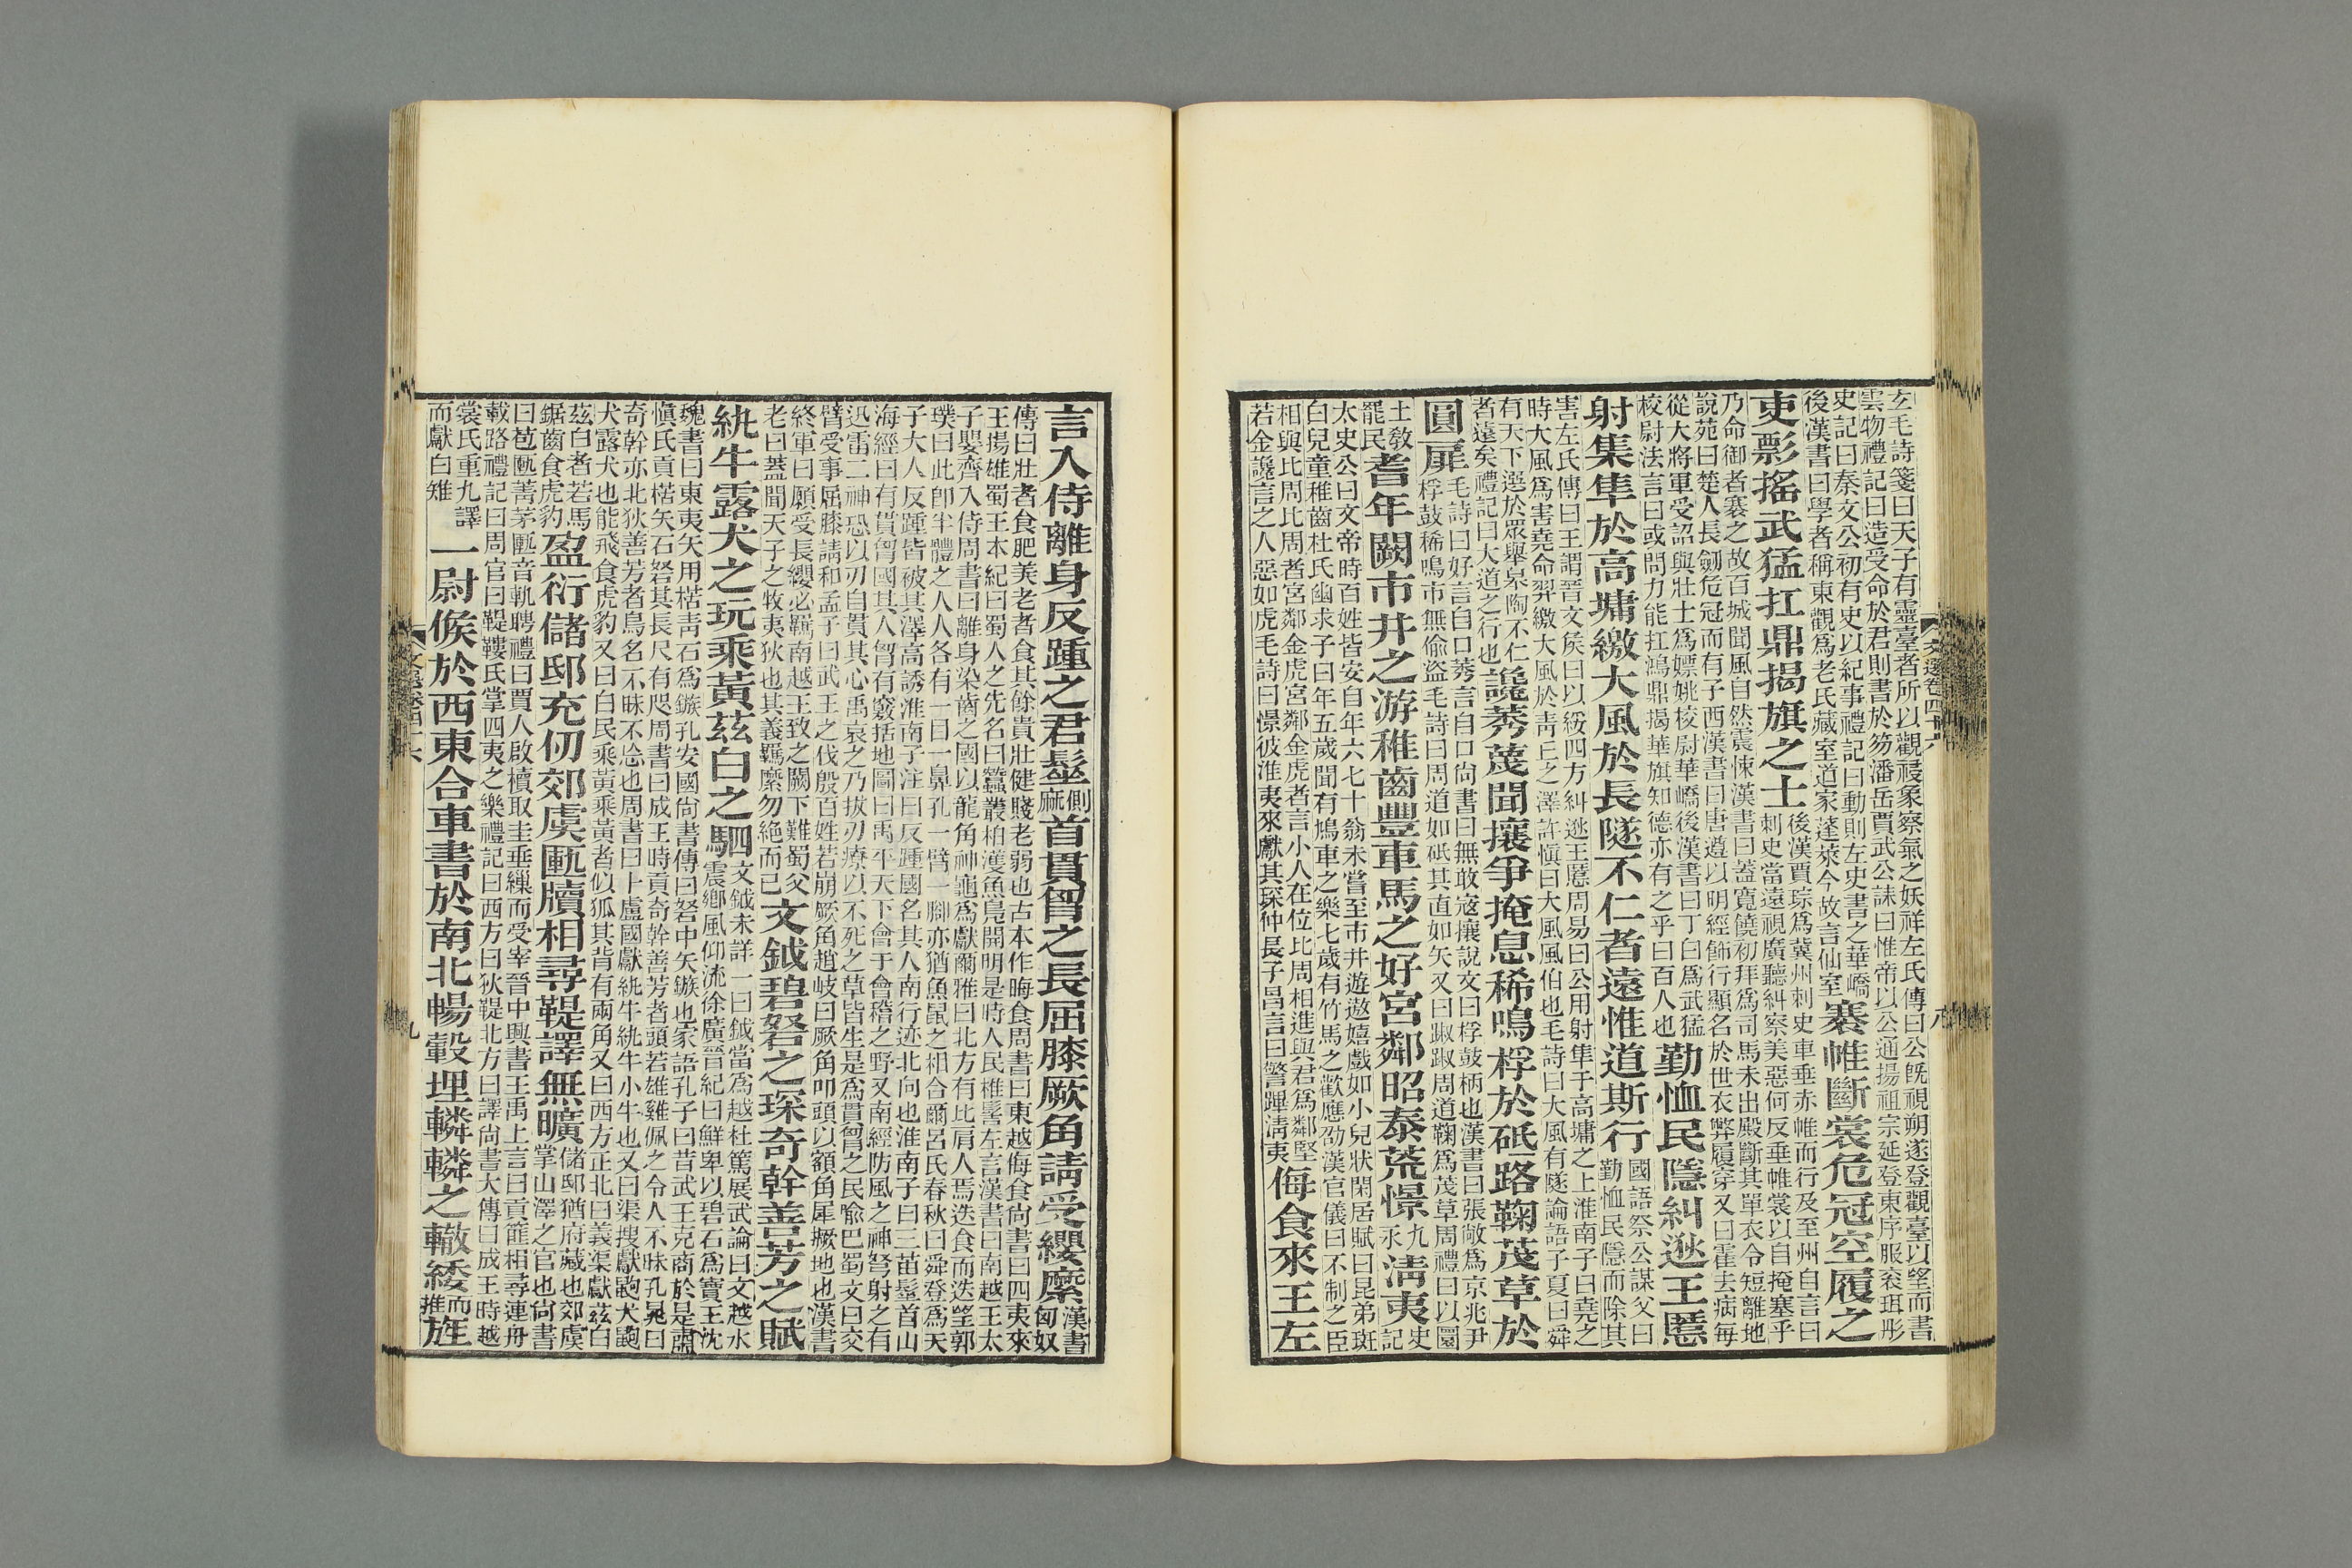 玄毛詩箋曰天子有靈臺者所以觀祲象察氣之妖祥左氏傳曰公旣視朔遂登觀臺以望而書
雲物禮記曰造受命於君則書於笏潘岳賈武公誄曰惟帝以公通揚祖宗延登東序服衮珥彤
史記曰泰文公初有史以紀事禮記曰動則左史書之華嶠
後漢書曰學者稱東觀爲老氏藏室道家蓬萊今故言仙室
褰帷斷裳危冠空履之
吏彯搖武猛扛鼎揭旗之士
後漢賈琮爲冀州刺史車垂赤帷而行及至州自言曰
刺史當遠視廣聽糾察美惡何反垂帷裳以自掩塞乎
乃命御者褰之故百城聞風自然震悚漢書曰蓋寬饒初拜爲司馬未出殿斷其單衣令短離地
說苑曰楚人長劒危冠而有子西漢書曰唐遵以明經飾行顯名於世衣弊履穿又曰霍去病每
從大將軍受詔與壯士爲嫖姚校尉華嶠後漢書曰丁白爲武猛
校尉法言曰或問力能扛鴻鼎揭華旗知德亦有之乎曰百人也
勤恤民隱糾逖王慝
射集隼於高墉繳大風於長隧不仁者遠惟道斯行
國語祭公謀父曰
勤恤民隱而除其
害左氏傳曰王謂晉文矦曰以綏四方糾逖王慝周易曰公用射隼于高墉之上淮南子曰堯之
時大風爲害堯命羿繳大風於靑丘之澤許愼曰大風風伯也毛詩曰大風有隧論語子夏曰舜
有天下選於眾舉臯陶不仁
者遠矣禮記曰大道之行也
讒莠蔑聞攘爭掩息稀鳴桴於砥路鞠茂草於
圓扉
毛詩曰好言自口莠言自口尙書曰無敢寇攘說文曰桴鼓柄也漢書曰張敞爲京兆尹
桴鼓稀鳴市無偷盜毛詩曰周道如砥其直如矢又曰踧踧周道鞠爲茂草周禮曰以圜
土敎
罷民
耆年闕市井之游稚齒豐車馬之好宮鄰昭泰荒憬
九
永
淸夷
史
記
太史公曰文帝時百姓皆安自年六七十翁未嘗至市井遊遨嬉戲如小兒狀閑居賦曰昆弟斑
白兒童稚齒杜氏幽求子曰年五歲聞有鳩車之樂七歲有竹馬之歡應劭漢官儀曰不制之臣
相與比周比周者宮鄰金虎宮鄰金虎者言小人在位比周相進與君爲鄰堅
若金讒言之人惡如虎毛詩曰憬彼淮夷來獻其琛仲長子昌言曰警蹕淸夷
侮食來王左
言入侍離身反踵之君髽
側
麻
首貫胷之長屈膝厥角請受纓縻
漢書
匈奴
傳曰壯者食肥美老者食其餘貴壯健賤老弱也古本作晦食周書曰東越侮食尙書曰四夷來
王揚雄蜀王本紀曰蜀人之先名曰蠶叢柏濩魚鳧開明是時人民椎髻左言漢書曰南越王太
子嬰齊入侍周書曰離身染齒之國以龍角神龜爲獻爾雅曰北方有比肩人焉迭食而迭望郭
璞曰此卽半體之人人各有一目一鼻孔一臂一腳亦猶魚鼠之相合爾呂氏春秋曰舜登爲天
子大人反踵皆被其澤高誘淮南子注曰反踵國名其人南行迹北向也淮南子曰三苗髽首山
海經曰有貫胷國其人胷有竅括地圖曰禹平天下會于會稽之野又南經防風之神弩射之有
迅雷二神恐以刃自貫其心禹哀之乃拔刃療以不死之草皆生是爲貫胷之民喩巴蜀文曰交
臂受事屈膝請和孟子曰武王之伐殷百姓若崩厥角趙岐曰厥角叩頭以額角犀撅地也漢書
終軍曰願受長纓必羈南越王致之闕下難蜀父
老曰蓋聞天子之牧夷狄也其義羈縻勿絶而已
文鉞碧砮之琛奇幹善芳之賦
紈牛露犬之玩乘黃茲白之駟
文鉞未詳一曰鉞當爲越杜篤展武論曰文越水
震鄕風仰流徐廣晉紀曰鮮卑以碧石爲寶王沈
魏書曰東夷矢用楛靑石爲鏃孔安國尙書傳曰砮中矢鏃也家語孔子曰昔武王克商於是肅
愼氏貢楛矢石砮其長尺有咫周書曰成王時貢奇幹善芳者頭若雄雞佩之令人不昧孔晁曰
奇幹亦北狄善芳者鳥名不昧不忘也周書曰卜盧國獻紈牛紈牛小牛也又曰渠搜獻䶂犬䶂
犬露犬也能飛食虎豹又曰白民乘黃乘黃者似狐其背有兩角又曰西方正北曰義渠獻茲白
茲白者若馬
鋸齒食虎豹
盈衍儲邸充仞郊虞匭牘相尋鞮譯無曠
儲邸猶府藏也郊虞
掌山澤之官也尙書
曰苞匭菁茅匭音軌聘禮曰賈人啟櫝取圭垂繅而受宰晉中興書王禹上言曰貢篚相尋連舟
載路禮記曰周官曰鞮鞻氏掌四夷之樂禮記曰西方曰狄鞮北方曰譯尙書大傳曰成王時越
裳氏重九譯
而獻白雉
一尉候於西東合車書於南北暢轂埋轔轔之轍緌
而
推
旌
文選卷四十六
八
文選卷四十六
九